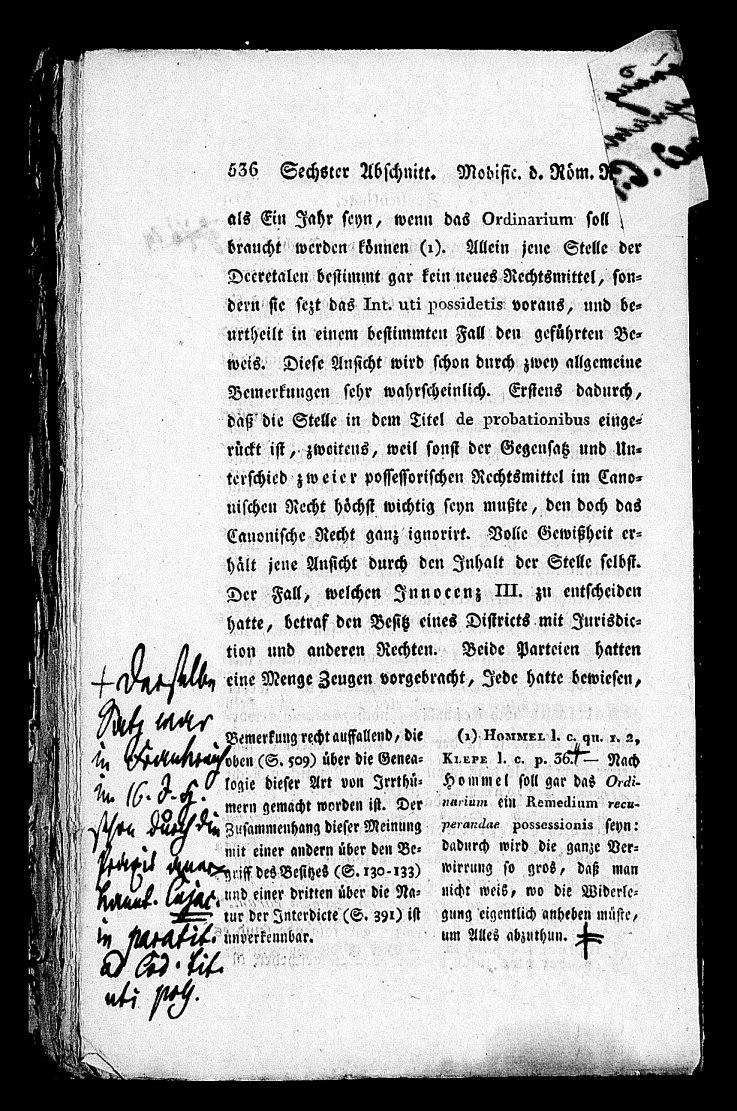 536 Sechster Abschnitt. Modific. d. Röm. R
als Ein Jahr seyn, wenn das Ordinarium soll
braucht werden können (1). Allein jene Stelle der
Decretalen bestimmt gar kein neues Rechtsmittel, son-
dern sie sezt das Int. uti possidetis voraus, und be-
urtheilt in einem bestimmten Fall den geführten Be-
weis. Diese Ansicht wird schon durch zwey allgemeine
Bemerkungen sehr wahrscheinlich. Erstens dadurch,
daß die Stelle in dem Titel de probationibus einge-
rückt ist, zweitens, weil sonst der Gegensatz und Un-
terschied zweier possessorischen Rechtsmittel im Cano-
nischen Recht höchst wichtig seyn mußte, den doch das
Canonische Recht ganz ignorirt. Volle Gewißheit er-
hält jene Ansicht durch den Inhalt der Stelle selbst.
Der Fall, welchen Innocenz III. zu entscheiden
hatte, betraf den Besitz eines Districts mit Jurisdic-
tion und anderen Rechten. Beide Parteien hatten
eine Menge Zeugen vorgebracht, Jede hatte bewiesen,
Bemerkung recht auffallend, die
oben (S. 509) über die Genea-
logie dieser Art von Irrthü-
mern gemacht worden ist. Der
Zusammenhang dieser Meinung
mit einer andern über den Be-
griff des Besitzes (S. 130-133)
und einer dritten über die Na-
tur der Interdicte (S. 391) ist
unverkennbar.
(1) HOMMEL l. c. qu. 1. 2,
KLEPE l. c. p. 36.+ — Nach
Hommel soll gar das Ordi-
narium ein Remedium recu-
perandae possessionis seyn:
dadurch wird die ganze Ver-
wirrung so gros, daß man
nicht weis, wo die Widerle-
gung eigentlich anheben müste,
um Alles abzuthun.
+ Derselbe
Satz war
in Frankreich
im 16. J. H.
schon durch die
Praxis aner-
kannt. Cujac.
in paratit.
ad Cod. tit.
uti poss.